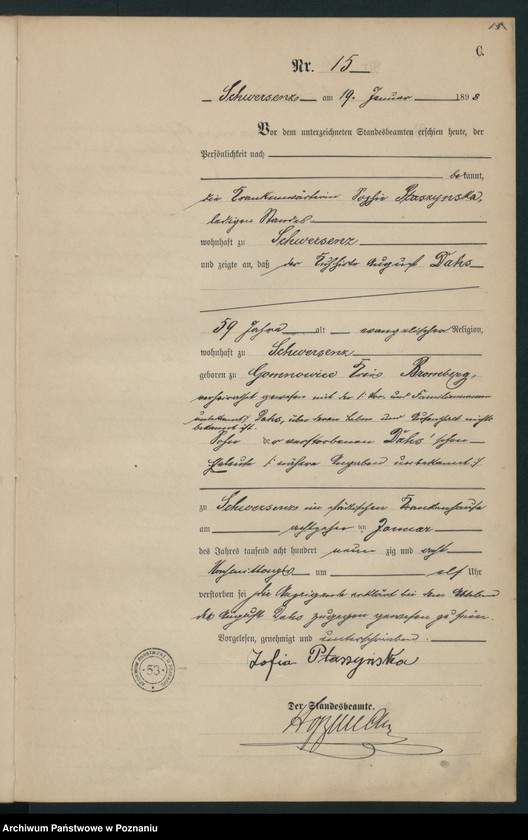 15
C.
Nr. 15
Schwersenz am 19. Januar 1898
Vor dem unterzeichneten Standesbeamten erschien heute, der
Persönlichkeit nach
bekannt,
die Krankenwärterin Sophie Ptaszynska,
ledigen Standes
wohnhaft zu Schwersenz
und zeigte an, daß der Kuhhirte August Dahs
59 Jahre alt evangelischer Religion,
wohnhaft zu Schwersenz
geboren zu Kreis Bromberg,
verheirathet gewesen mit der Vor- und Familiennamen
unbekannt Dahs, über deren Leben und Aufenthalt nichts
bekannt ist.
Sohn der verstorbenen Dahs'schen
Eheleute nähere Angaben unbekannt
zu Schwersenz im städtischen Krankenhause
am achtzehn ten Januar
des Jahres tausend acht hundert neun zig und acht
Nachmittags um elf Uhr
verstorben sei die Anzeigende erklärt bei dem Ableben
des August Dahs zugegen gewesen zu sein.
Vorgelesen, genehmigt und unterschrieben.
Zofia Ptaszyńska
ARCHIWUM PAŃSTWOWE W POZNANIU
53
Der Standesbeamte.
Archiwum Państwowe w Poznaniu